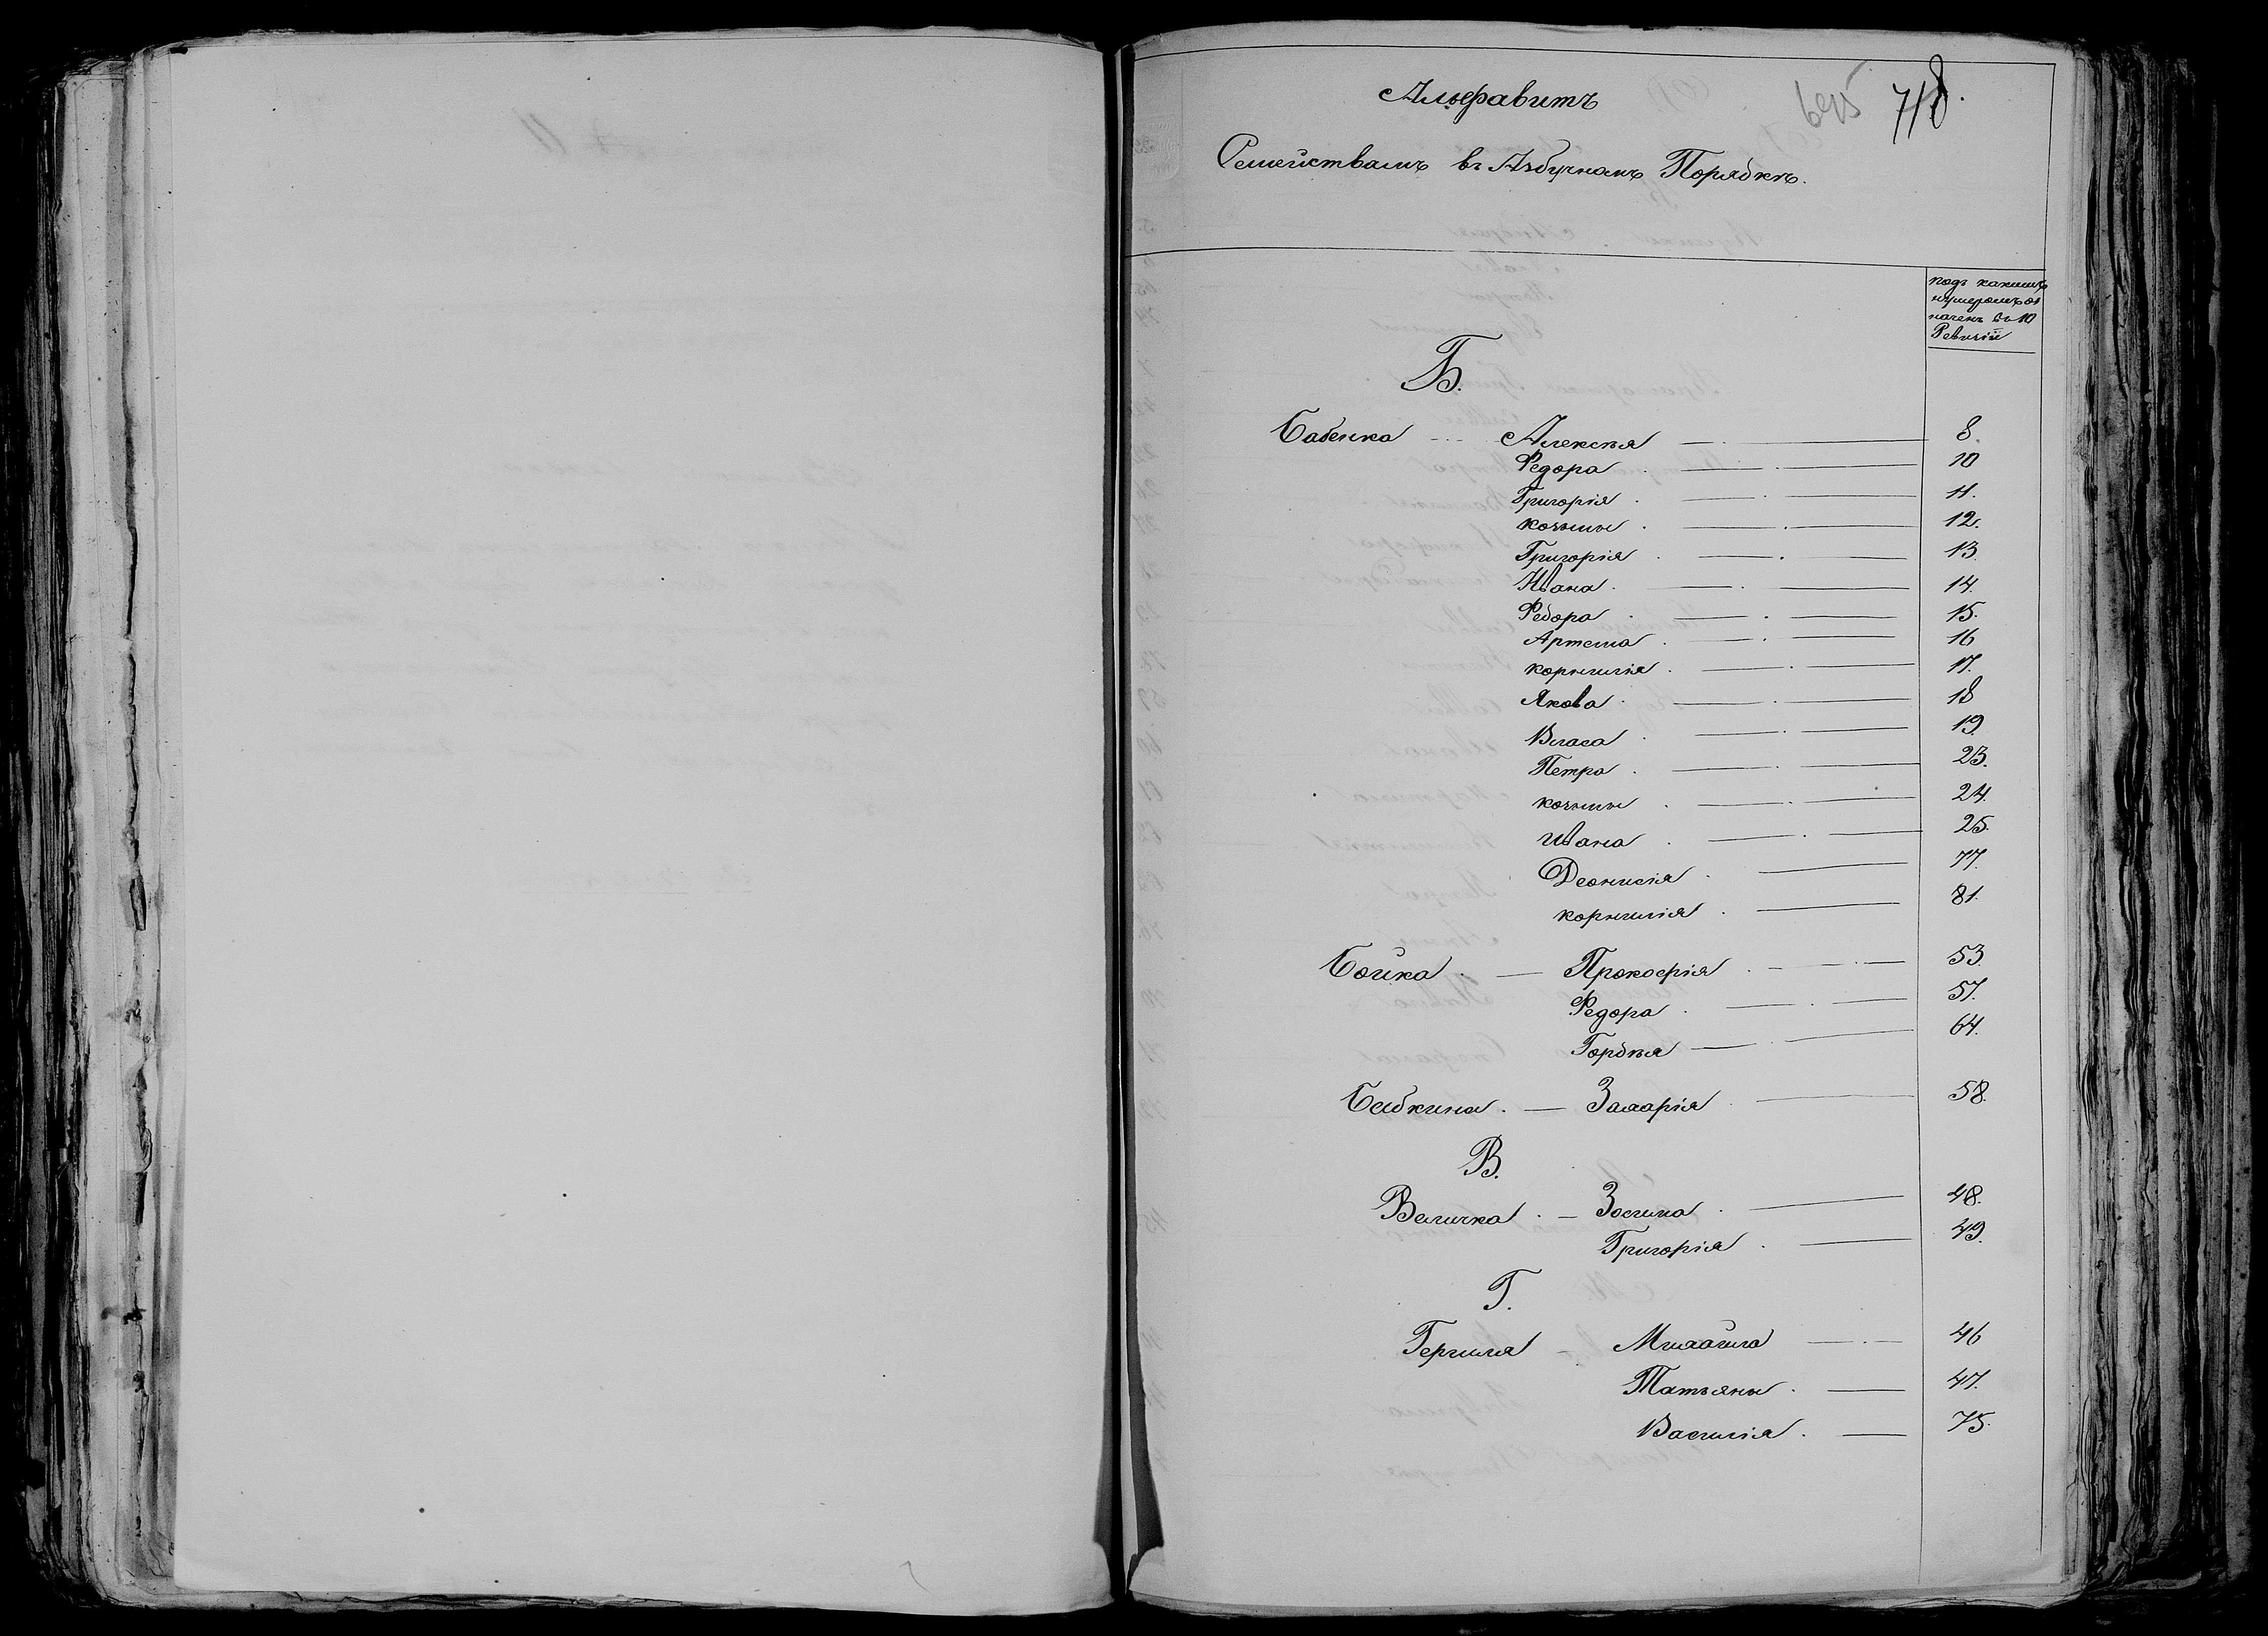 Альфавитъ
695 718.
Семействамъ въ Азбучномъ Порядкѣ.
подъ какимъ
нумеромъ оз
наченъ въ 10
Ревизіи
Б.
Бабенка - - - Алексѣя 8.
Федора 10
Григорія 11.
козьмы 12.
Григорія 13
Ивана 14.
Федора 15.
Артема 16
корнилія 17.
Якова 18
Власа 19
Петра 23.
козьмы 24.
ивана 25.
Деонисія 77.
корнилія 81.
Бойка Прокофія 53
Федора 57.
Гордѣя 64.
Бабкина Захарія 58.
В.
Величка Зосима 48.
Григорія 49.
Г.
Михайла 46
Татьяны 47.
Василія 75.